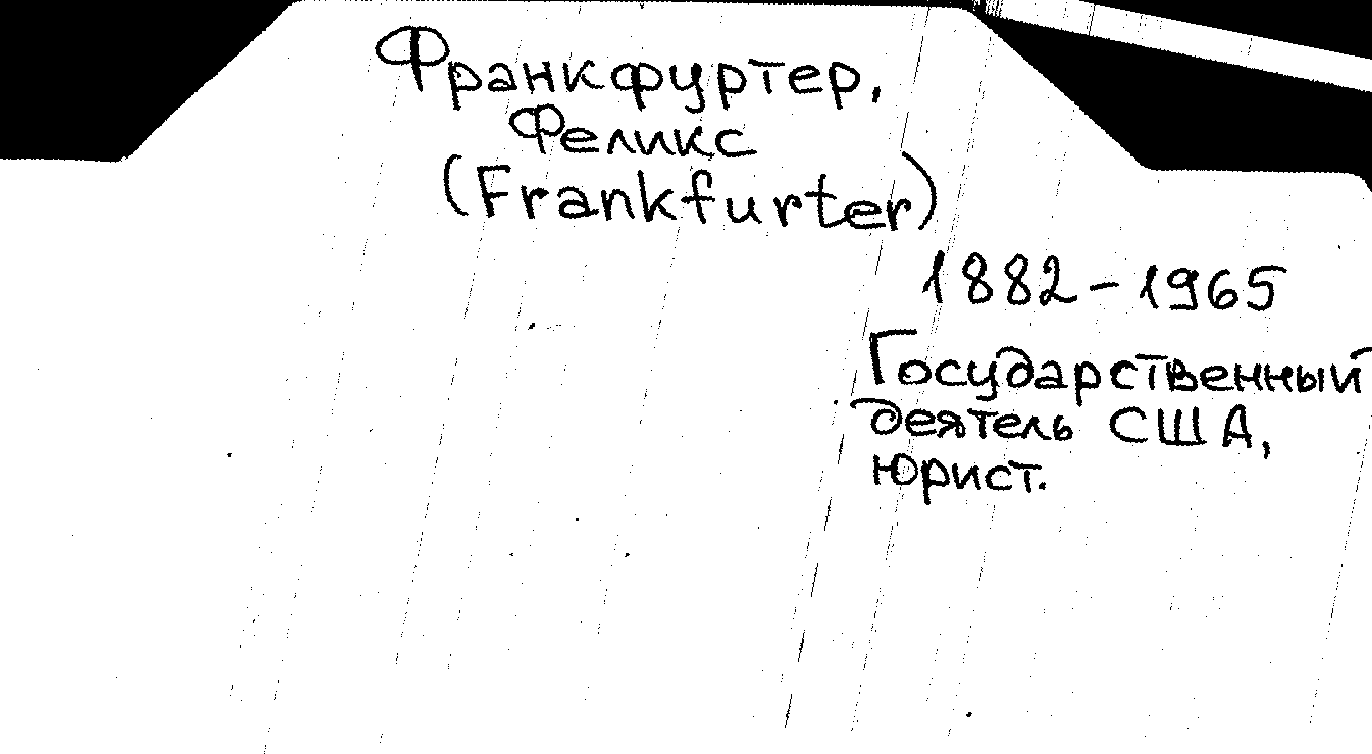 Франкфуртер,
Феликс
(Frankfurter)
1882-1965
Государственный
деятель США,
юрист.